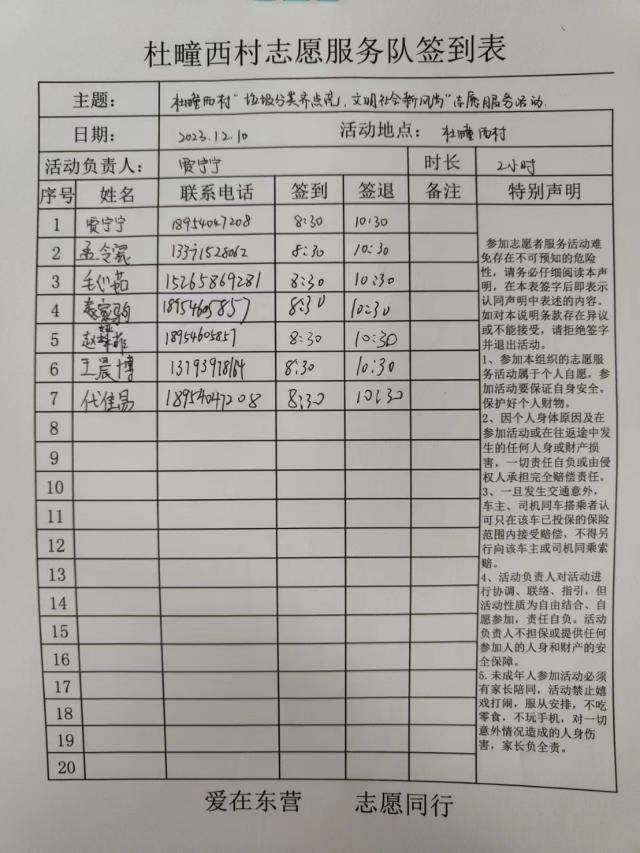 杜疃西村志愿服务队签到表
主题： 杜疃西村"垃圾分类齐点亮，文明社会新风尚"志愿服务活动.
日期： 2023.12.10 活动地点： 杜疃西村
活动负责人： 贾宁宁 时长 2小时
序号 姓名 联系电话 签到 签退 备注 特别声明
1 贾宁宁 18954047208 8:30 10:30
2 孟令 13371528062 8:30 10:30
3 毛 茹 15265869281 8:30 10:30
4 18954605857 8:30 10:30
5 赵 菲 18954605857 8:30 10:30
6 王晨博 8:30 10:30
7 代佳易 18954047208 8:30 10:30
8
9
10
11
12
13
14
15
16
17
18
19
20
参加志愿者服务活动难
免存在不可预知的危险
性，请务必仔细阅读本声
明，在本表签字后即表示
认同声明中表述的内容。
如对本说明条款存在异议
或不能接受，请拒绝签字
并退出活动。
1、参加本组织的志愿服
务活动属于个人自愿，参
加活动要保证自身安全。
保护好个人财物。
2、因个人身体原因及在
参加活动或在往返途中发
生的任何人身或财产损
害，一切责任自负或由侵
权人承担完全赔偿责任。
3、一旦发生交通意外，
车主、司机同车搭乘者认
可只在该车已投保的保险
范围内接受赔偿，不得另
行向该车主或司机同乘索
赔。
4、活动负责人对活动进
行协调、联络、指引，但
活动性质为自由结合、自
愿参加，责任自负。活动
负责人不担保或提供任何
参加人的人身和财产的安
全保障。
5.未成年人参加活动必须
有家长陪同，活动禁止嬉
戏打闹，服从安排，不吃
零食，不玩手机，对一切
意外情况造成的人身伤
害，家长负全责。
爱在东营 志愿同行